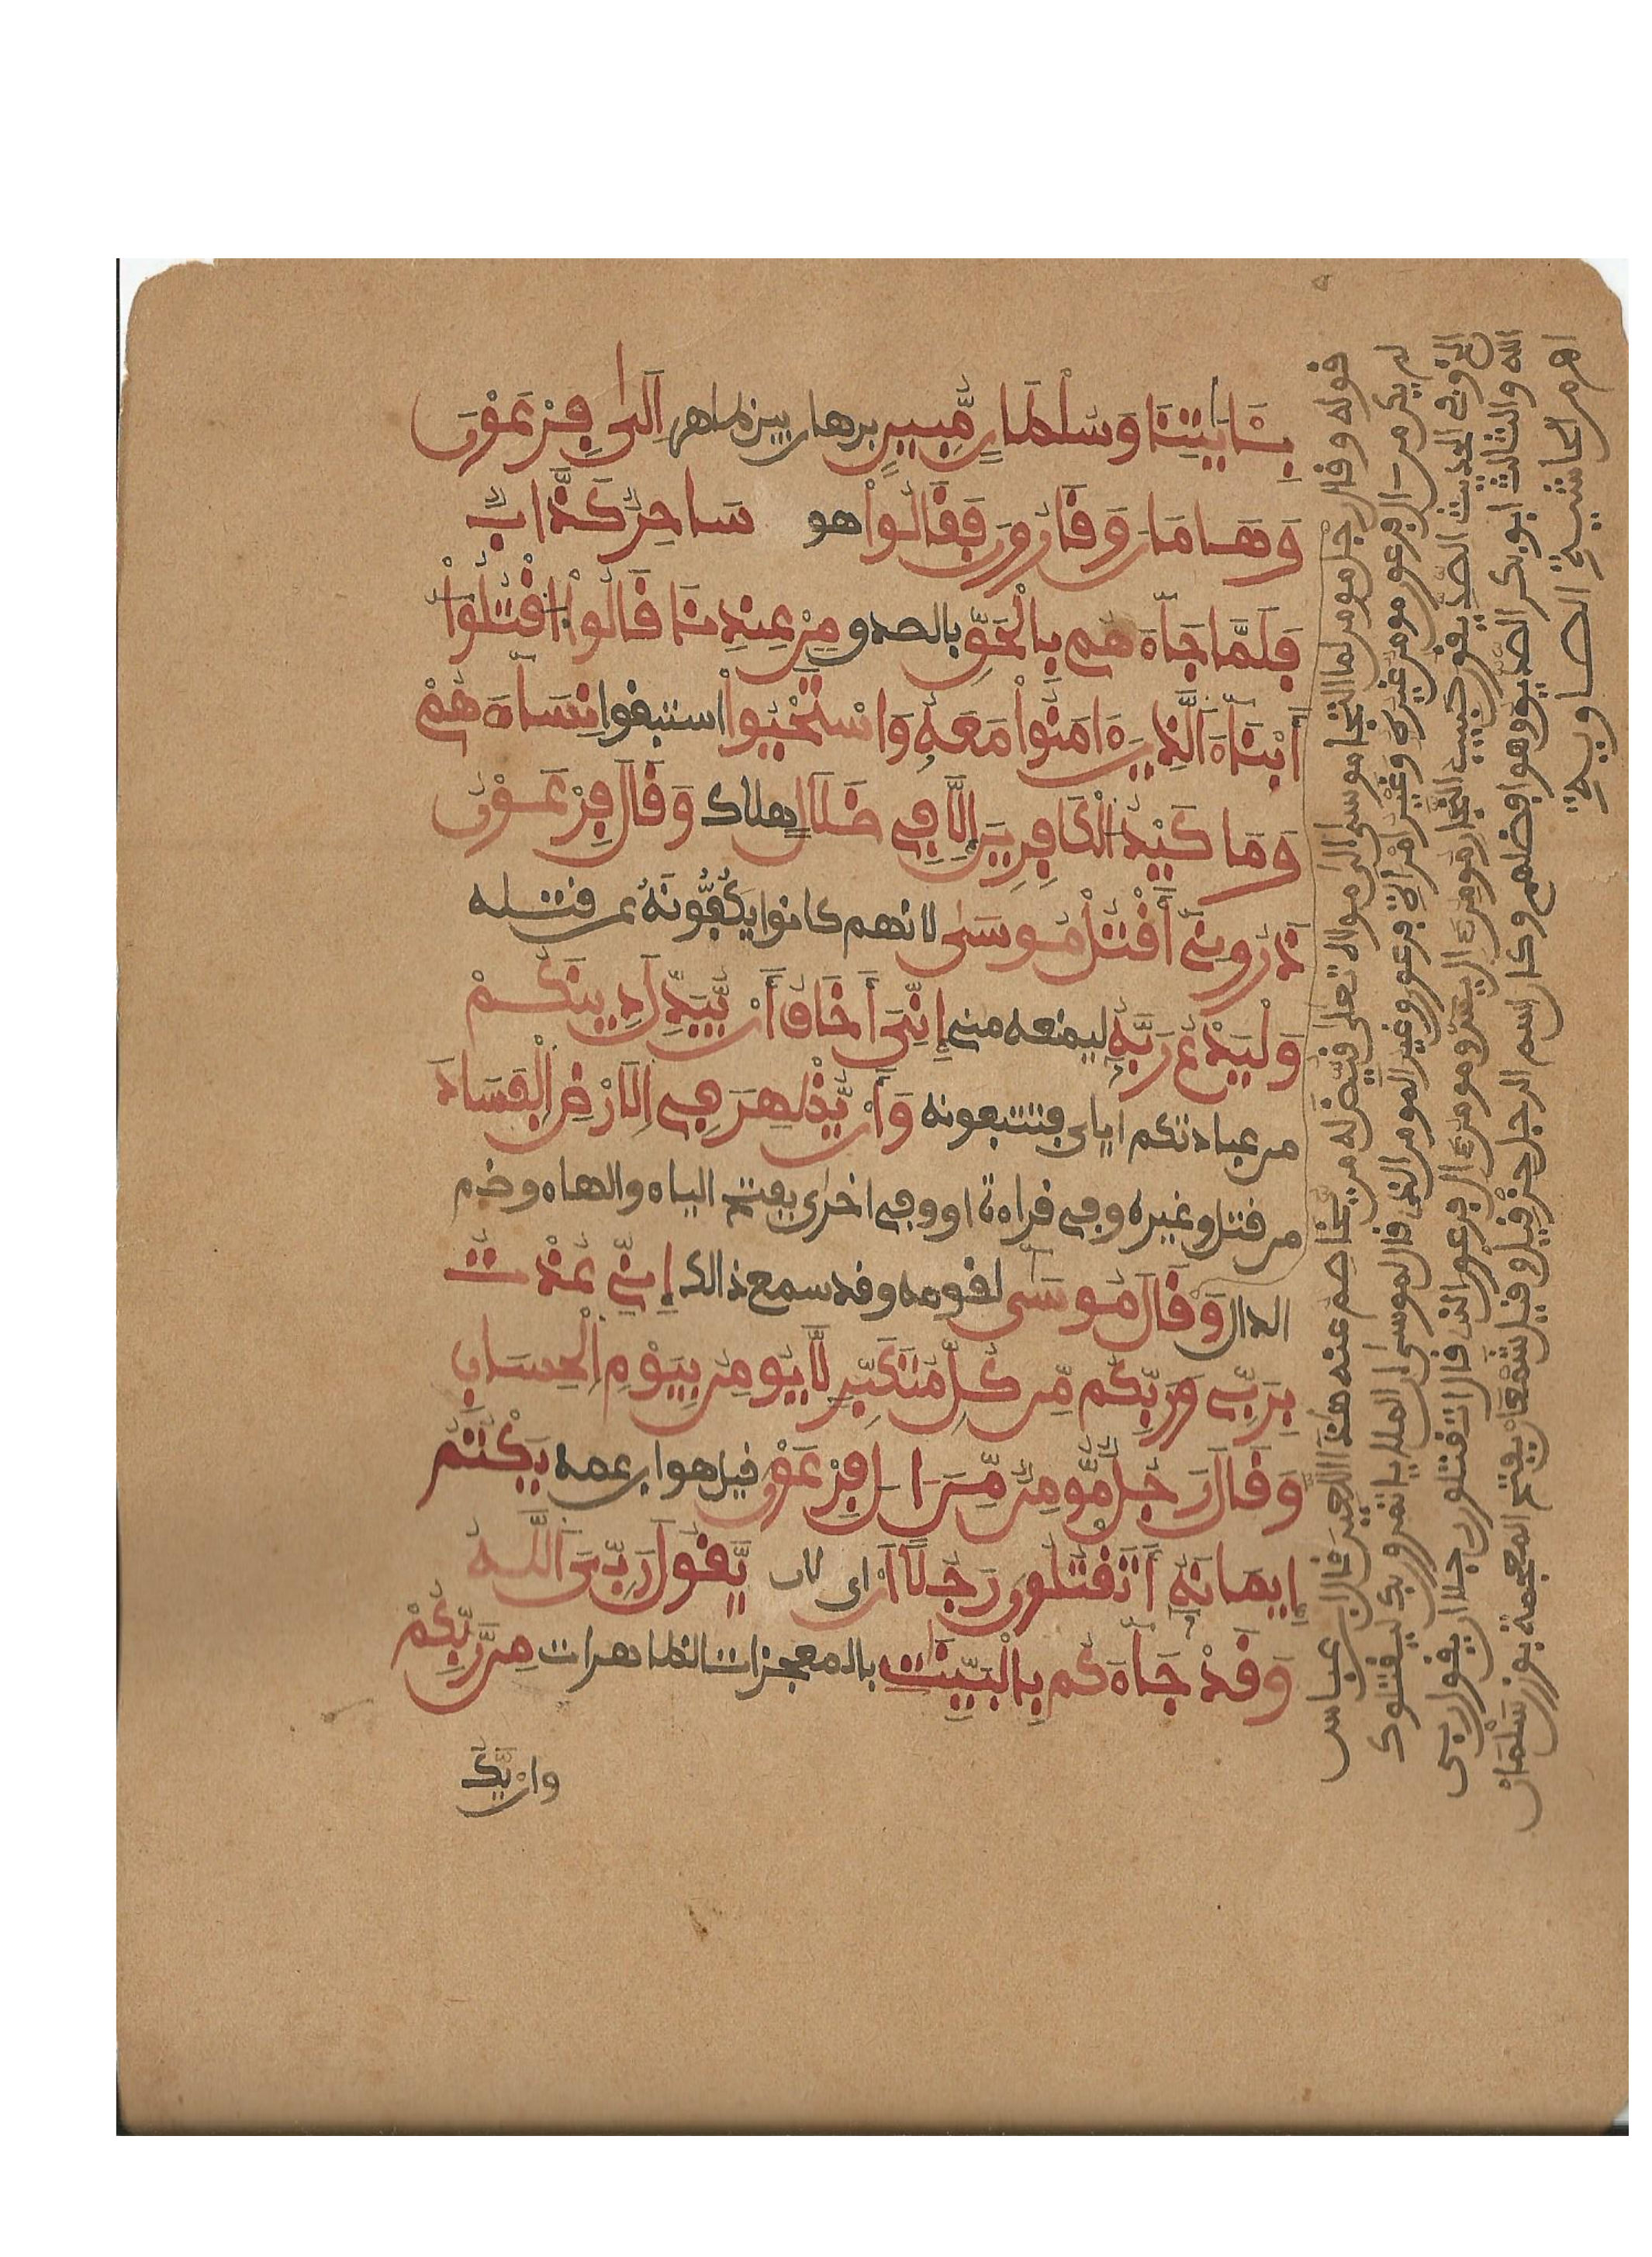 بِـَٔايَٰتِنَا وَسُلْطَانٍ مُّبِينٍ برهان بين ظاهر اِلَىٰ فِرْعَوْنَ
وَهَامَانَ وَقَارُونَ فَقَالُواْ هو سَاحِرٌ كَذَّابٌ
فَلَمَّا جَآءَهُم بِالْحَقِّ بالصدق مِنْ عِندِنَا قَالُواْ اقْتُلُواْ
أَبْنَآءَ الَّذِينَ ءَامَنُواْ مَعَهُۥ وَاسْتَحْيُواْ استبقوا نِسَآءَهُمْ
وَمَا كَيْدُ الْكَافِرِينَ إِلَّا فِي ضَلَالٍ هلاك وَقَالَ فِرْعَوْنُ
ذَرُونِيَ أَقْتُلْ مُوسَىٰ لانهم كانوا يَكُفُّونَهُ عن قتله
وَلْيَدْعُ رَبَّهُ ليمنعه مني إِنِّيَ أَخَافُ أَنْ يُّبَدِّلَ دِينَكُمْ
من عبادتكم اياي فتتبعونه وَأَنْ يُّظْهِرَ فِي الَارْضِ الْفَسَادَ
من قتل وغيره وفي قراءة او وفي اخرى بفتح الياء والهاء وضم
الدال وَقَالَ مُوسَىٰ لقومه وقد سمع ذالك إِنِّي عُذْتُ
بِرَبِّي وَرَبِّكُم مِّن كُلِّ مُتَكَبِّرٍ لَّا يُومِنُ بِيَوْمِ الْحِسَابِ
وَقَالَ رَجُلٌ مُّومِنٌ مِّنَ اٰلِ فِرْعَوْنَ قيل هو ابن عمه يَكْتُمُ
إِيمَانَهُۥ أَتَقْتُلُونَ رَجُلًا اَنْ اى لان يَّقُولَ رَبِّيَ اللَّهُ
وَقَدْ جَآءَكُم بِالْبَيِّنَٰتِ بالمعجزات الظاهرات مِن رَّبِّكُمْ
وان يَّكُ
قوله وقال رجل مومن لما التجا موسى الى مولاه تعلى قيض له من يخاصم عنه هذا اللعين قال ابن عباس
لم يكن من ال فرعون مومن غيره وغير امراة فرعون وغير المومن الذي قال لموسى ان الملا ياتمرون بك ليقتلوك
وفي الحديث الصديقون حبيب النجار مومن ال يس ومومن ال فرعون الذي قال اتقتلون رجلا ان يقول ربي
الله والثالث ابو بكر الصديق وهو افضلهم وكان اسم الرجل حزقيل وقيل شمعان بفتح المعجمة بوزن سلمان
اهـ من حاشية الصاوية